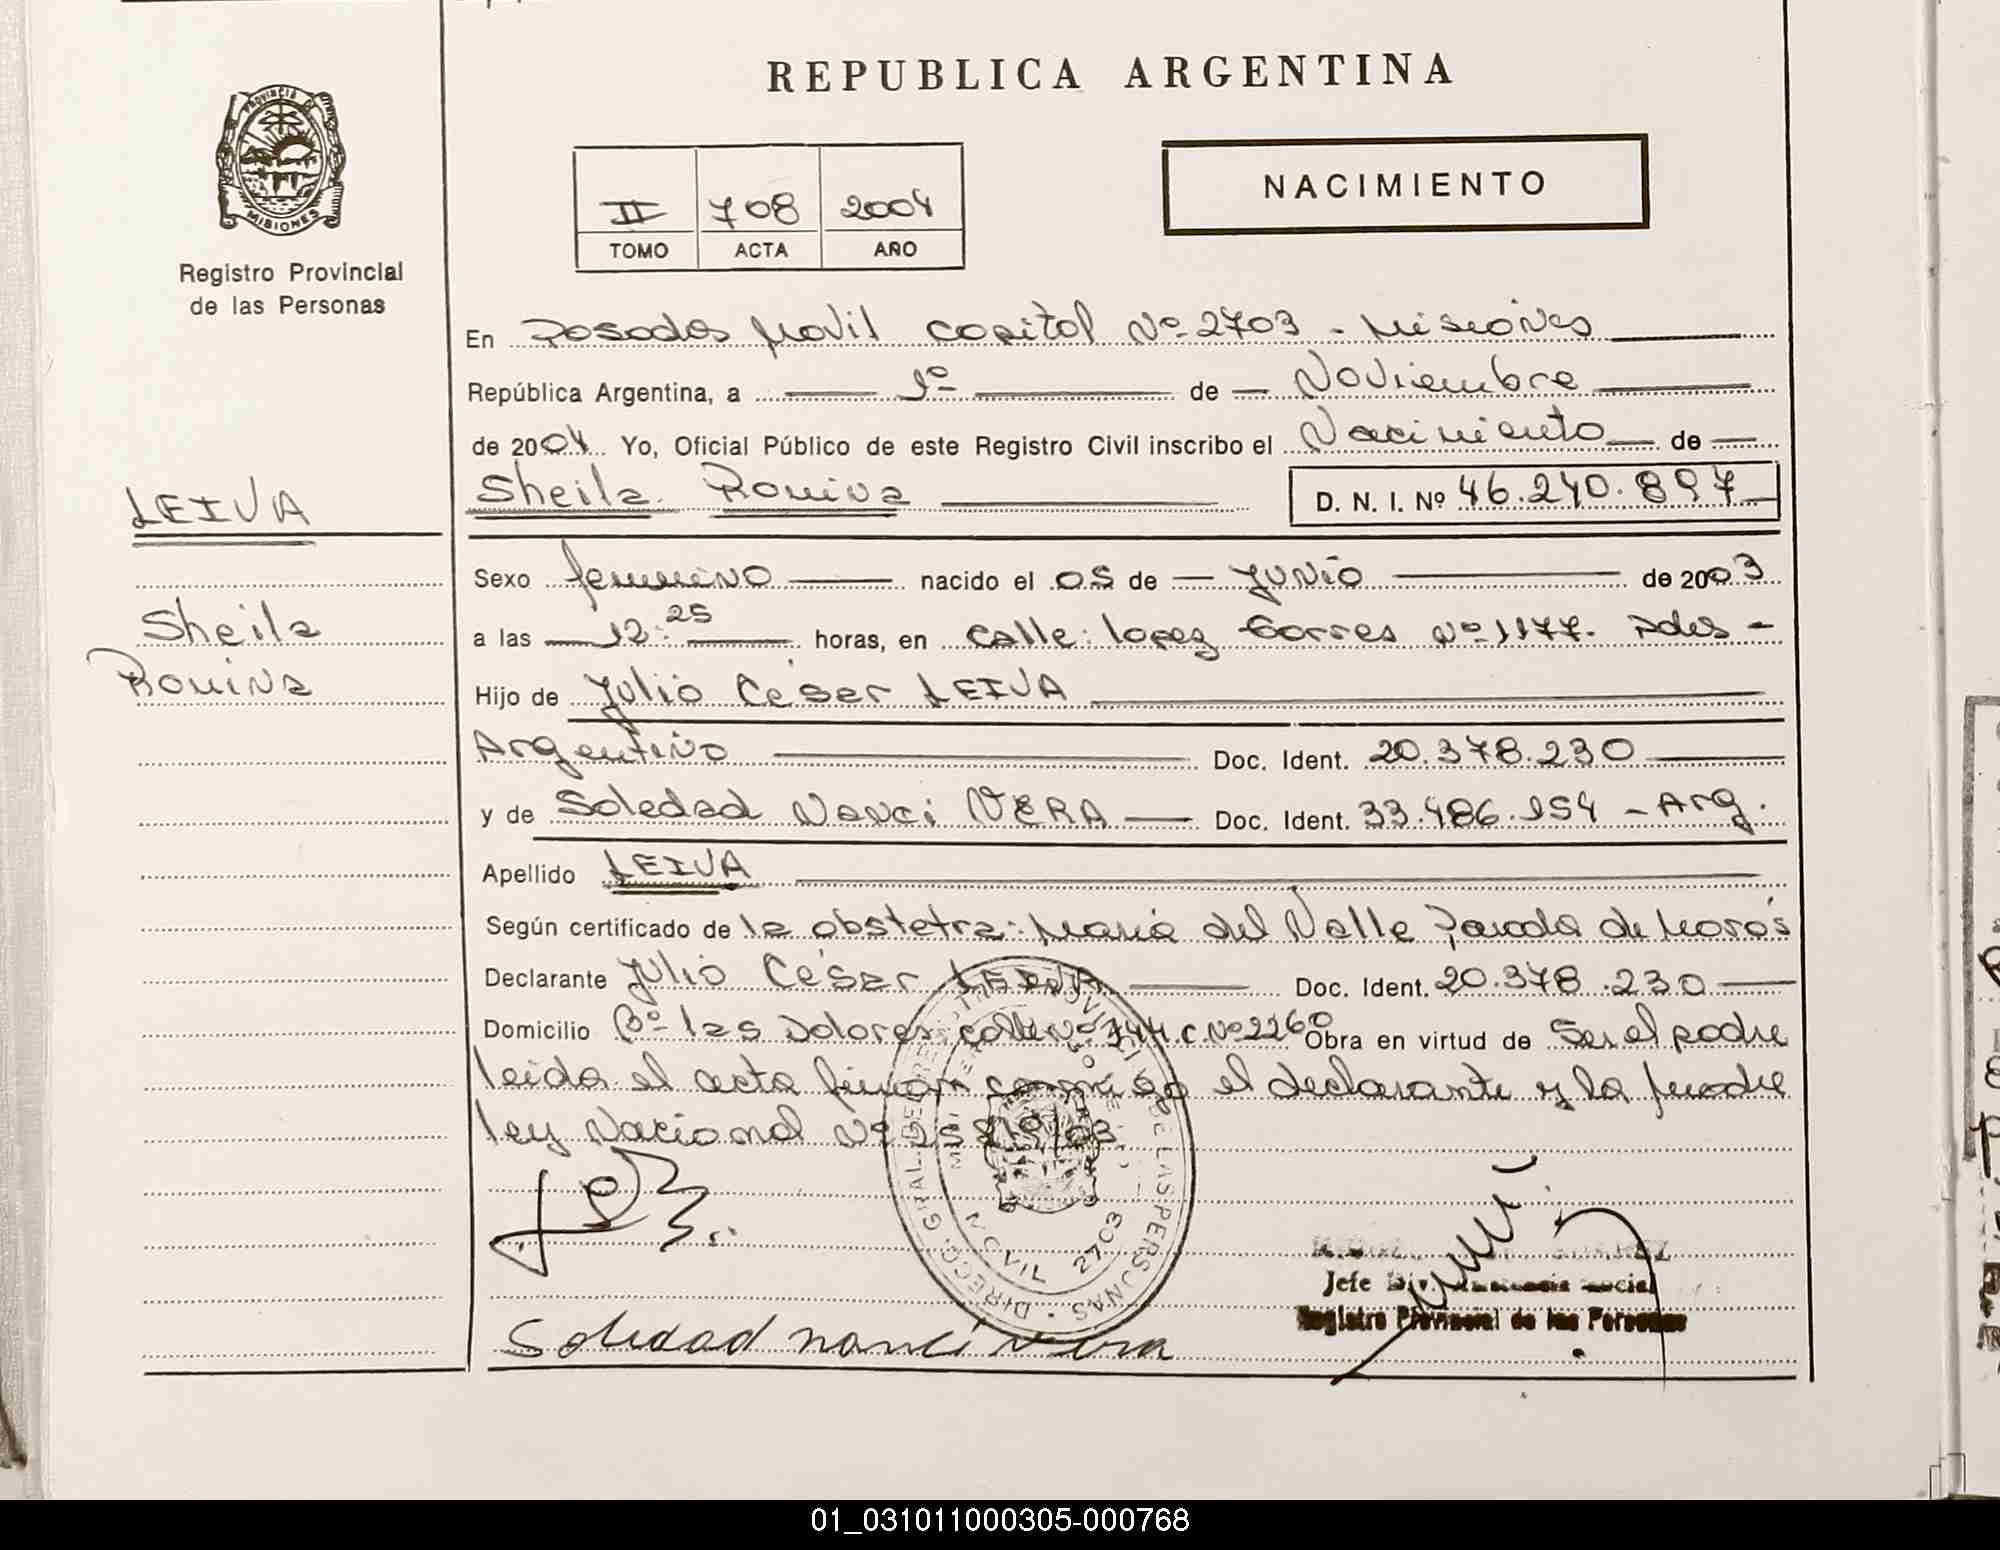 REPUBLICA ARGENTINA
PROVINCIA DE
MISIONES
Registro Provincial
de las Personas
II 708 2004
TOMO ACTA AÑO
NACIMIENTO
En Posadas Movil Capital Nº 2703 - Misiones
República Argentina, a 1º de Noviembre
de 2004 Yo, Oficial Público de este Registro Civil inscribo el Nacimiento de
LEIVA
Sheila Romina D. N. I. Nº 46.240.897
Sexo femenino nacido el 05 de Junio de 2003
Sheila
a las 12:25 horas, en calle: Lopez Torres Nº 1177. Pdas -
Romina
Hijo de Julio César LEIVA
Argentino Doc. Ident. 20.378.230
y de Soledad Nanci VERA Doc. Ident. 33.486.154 - Arg.
Apellido LEIVA
Según certificado de la obstetra: María del Valle de
Declarante Julio César LEIVA Doc. Ident. 20.378.230
Domicilio Bº las Dolores calle Nº 144 C. Nº 2260 Obra en virtud de Ser el padre
leida el acta firman conmigo el declarante y la madre
ley Nacional Nº
MOVIL 2703
Soledad nanci vera
Jefe Div. Social
Registro Provincial de las Personas
01_031011000305-000768